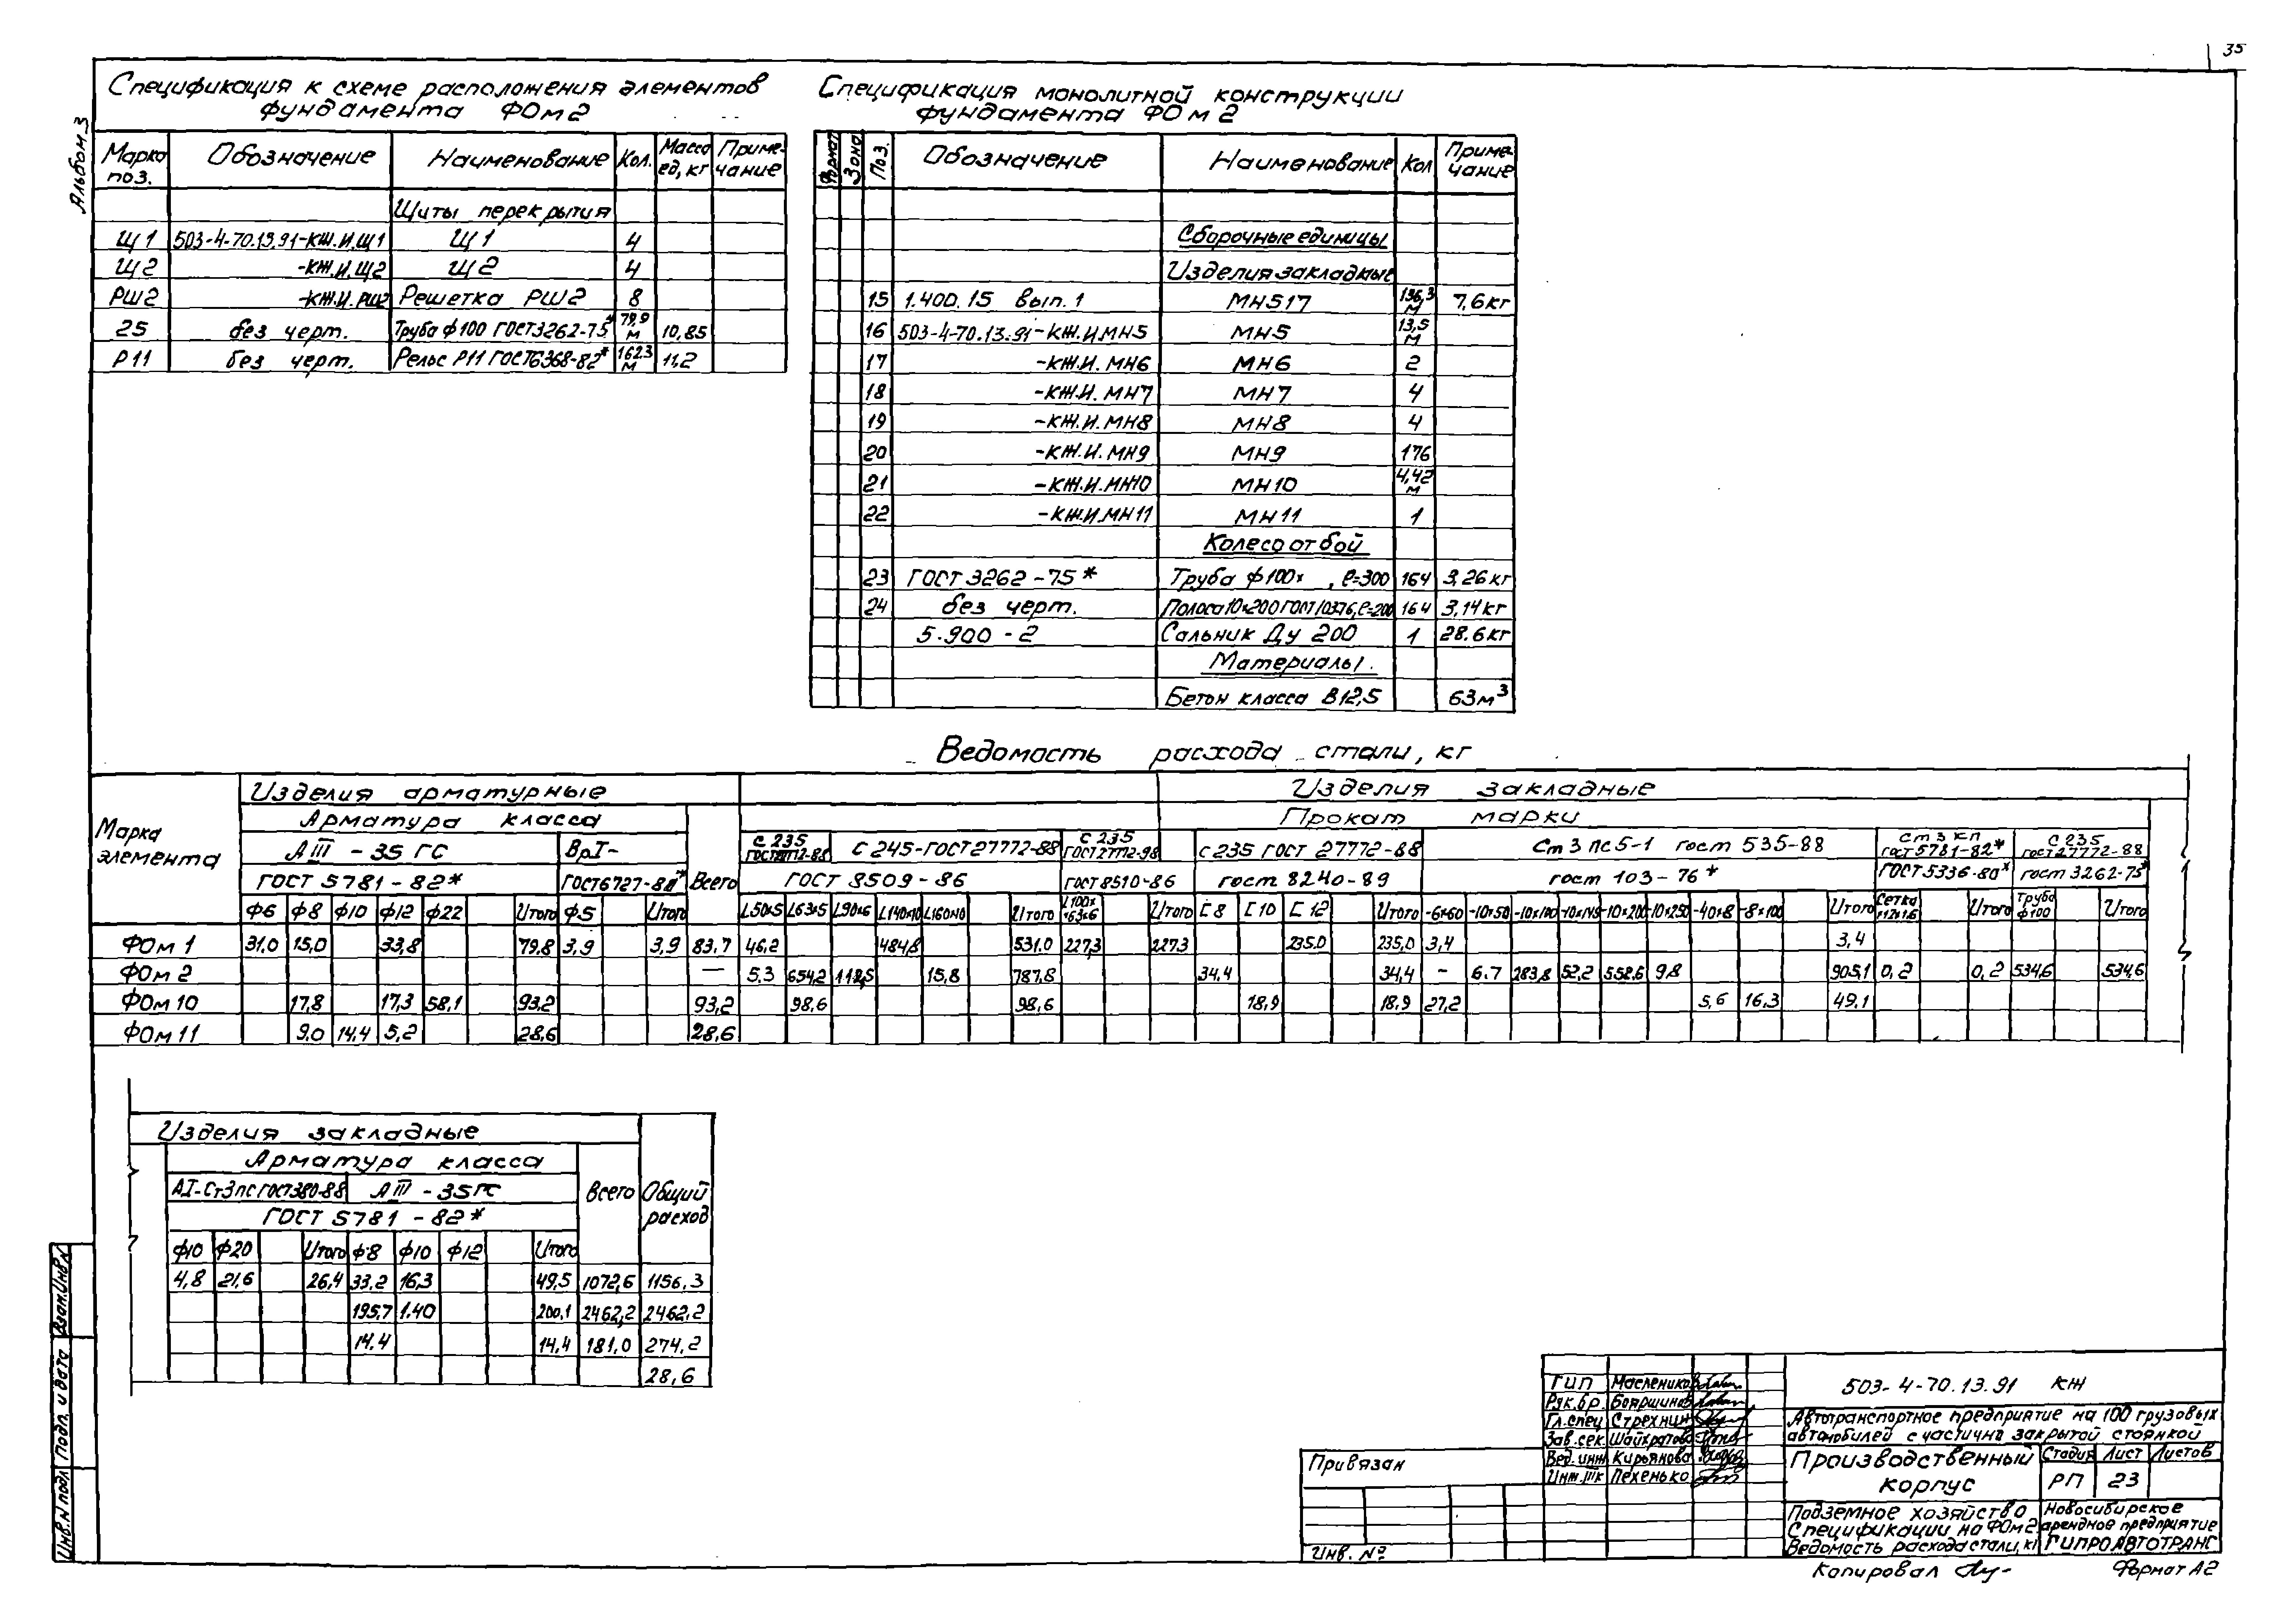 35
Альбом 3
Спецификация к схеме расположения элементов
фундамента ФОм2
Марка поз. Обозначение Наименование Кол. Масса ед, кг Примечание
Щиты перекрытия
Щ1 503-4-70.13.91-КЖ.И.Щ1 Щ1 4
Щ2 -КЖ.И.Щ2 Щ2 4
РШ2 -КЖ.И.РШ2 Решетка РШ2 8
25 без черт. Труба ф100 ГОСТ3262-75* 79,9 м 10,85
Р11 без черт. Рельс Р11 ГОСТ6368-82* 162.3 м 11,2
Спецификация монолитной конструкции
фундамента ФОм2
Формат Зона Поз. Обозначение Наименование Кол Примечание
Сборочные единицы
Изделия закладные
15 1.400.15 Вып. 1 МН517 136,3 м 7,6кг
16 503-4-70.13.91-КЖ.И.МН5 МН5 13,5 м
17 -КЖ.И.МН6 МН6 2
18 -КЖ.И.МН7 МН7 4
19 -КЖ.И.МН8 МН8 4
20 -КЖ.И.МН9 МН9 176
21 -КЖ.И.МН10 МН10 4,42 м
22 -КЖ.И.МН11 МН11 1
Колесоотбой
23 ГОСТ 3262-75* Труба ф100х , ℓ=300 164 3,26кг
24 без черт. Полоса10х200ГОСТ103-76,ℓ=200 164 3,14кг
5.900-2 Сальник Ду 200 1 28.6кг
Материалы.
Бетон класса В12,5 63м³
Ведомость расхода стали, кг
Марка элемента Изделия арматурные Изделия закладные
Арматура класса Всего Прокат марки
АIII-35ГС ВрI- С 235 ГОСТ27772-88 С 245-ГОСТ27772-88 С 235 ГОСТ27772-98 С 235 ГОСТ 27772-88 Ст 3 пс5-1 гост 535-88 Ст 3 кп ГОСТ5781-82* С 235 ГОСТ27772-88
ГОСТ 5781-82* ГОСТ6727-80* ГОСТ 8509-86 ГОСТ8510-86 гост 8240-89 гост 103-76* ГОСТ5336-80* гост 3262-75*
ф6 ф8 ф10 ф12 ф22 Итого ф5 Итого L50х5 L63х5 L90х6 L140х10 L160х10 Итого L100х63х6 Итого [8 [10 [12 Итого -6х60 -10х50 -10х100 -10х145 -10х200 -10х250 -40х8 -8х100 Итого Сетка Итого Труба ф100 Итого
ФОм 1 31.0 15,0 33,8 79,8 3,9 3,9 83,7 46,2 484,8 531.0 227,3 227,3 235.0 235,0 3,4 3,4
ФОм 2 — 5.3 654,2 112,5 15,8 787,8 34.4 34,4 - 6.7 283,8 52,2 552.6 9.8 905,1 0,2 0,2 534,6 534,6
ФОм 10 17,8 17,3 58,1 93,2 93,2 98,6 98,6 18,9 18,9 27,2 5,6 16,3 49,1
ФОм 11 9.0 14,4 5,2 28,6 28,6
Изделия закладные
Арматура класса Всего Общий расход
АI-Ст3пс ГОСТ380-88 АIII-35ГС
ГОСТ 5781-82*
ф10 ф20 Итого ф8 ф10 ф12 Итого
4,8 21,6 26,4 33,2 16,3 49,5 1072,6 1156,3
195,7 1.40 200,1 2462,2 2462,2
14.4 14,4 181,0 274,2
28,6
Взам.Инв.N
Подп. и дата
Инв.N подл
Привязан
Инв. №
ГИП Маслеников
Рук.бр. Бояршинов
Гл.спец Стрехнин
Зав.сек. Шайхратова
Вед.инж Кирьянова
Инж.IIIк Пехенько
503-4-70.13.91 КЖ
Автотранспортное предприятие на 100 грузовых
автомобилей с частично закрытой стоянкой
Производственный корпус
Стадия Лист Листов
РП 23
Подземное хозяйство
Спецификации на ФОм2
Ведомость расхода стали, кг
Новосибирское
арендное предприятие
ГИПРОАВТОТРАНС
Копировал
Формат А2